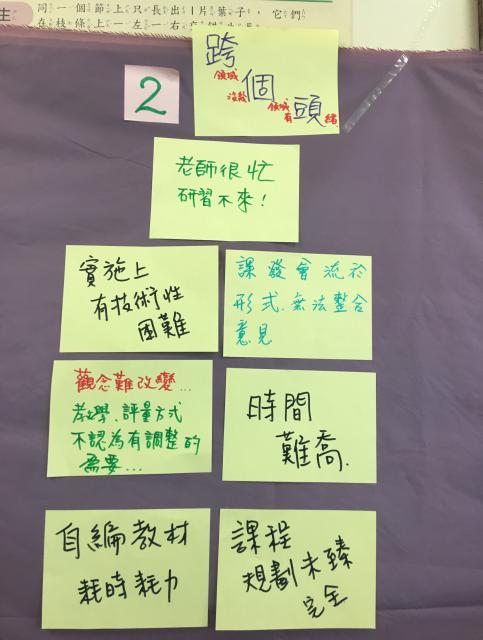 生
同一個節上只長出1片葉子，它們
在枝條上一左一右
2
跨領域
沒幾個領域
有頭緒
老師很忙
研習不來！
實施上
有技術性
困難
課發會流於
形式、無法整合
意見
觀念難改變…
教學、評量方式
不認為有調整的
需要…
時間
難喬.
自編教材
耗時耗力
課程
規劃未臻
完全